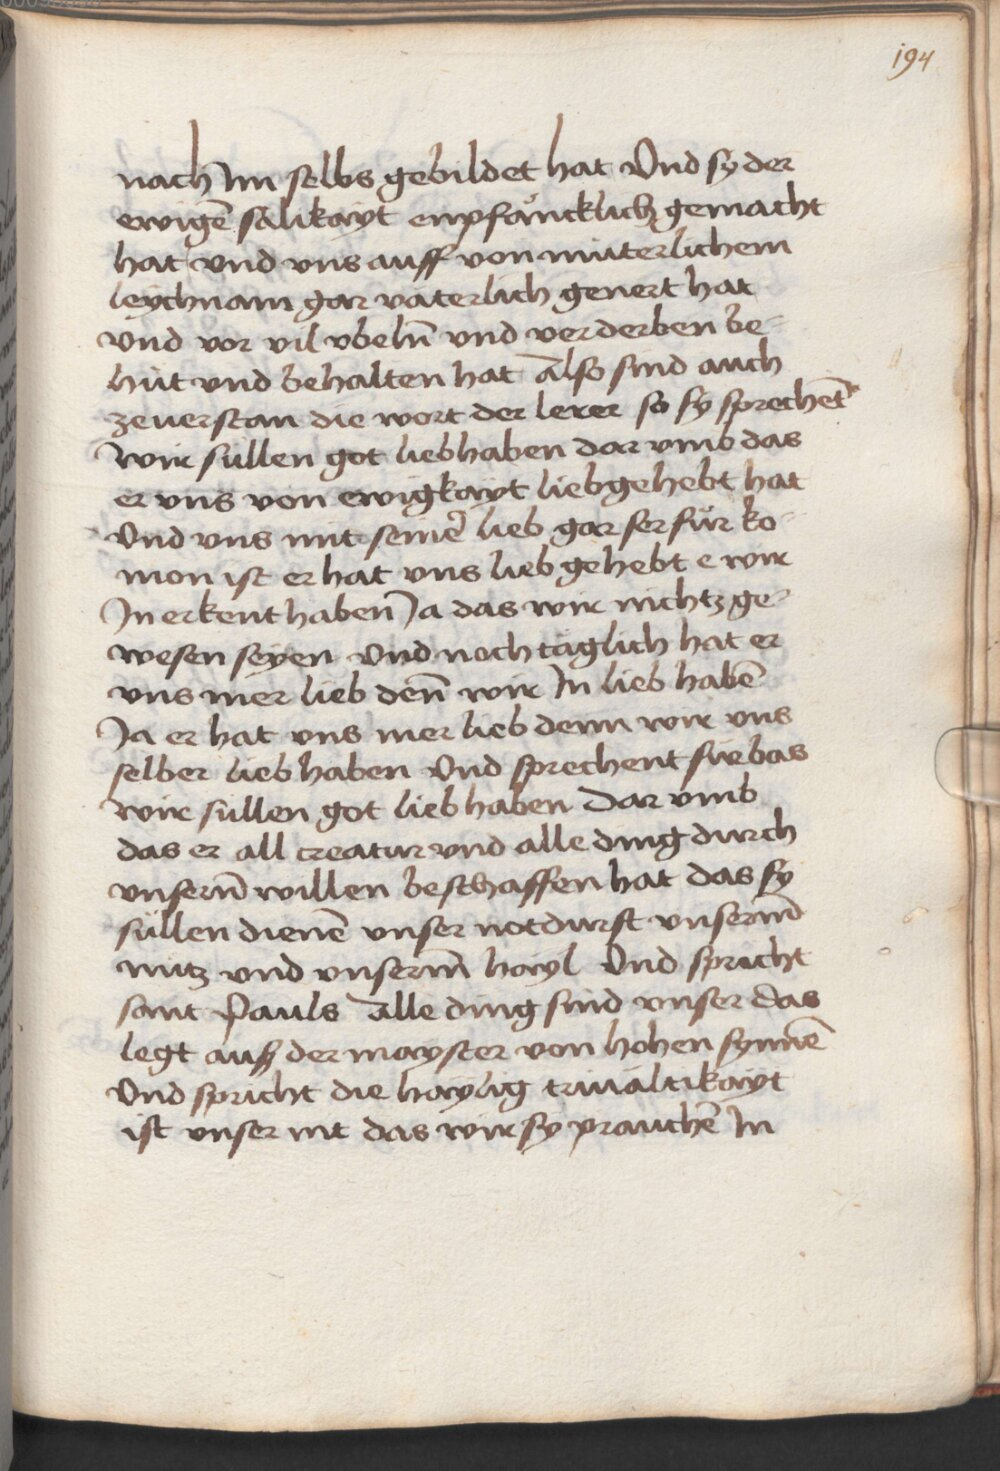 194
nach Im selbs gebildet hat Vnd sy der
ewigē sälikayt enpfäncklich gemacht
hat vnd vns auff von müterlichem
leychnam gar väterlich genert hat
vnd vor vil vbeln̄ vnd verderben be-
hüt vnd behalten hat Also sind auch
zeuerstan die wort der lerer so sy sprechēt
Wir süllen got liebhaben dar vmb das
er vns von ewigkayt liebgehebt hat
Vnd vns mit seinēr lieb gar ser für ko-
mon ist er hat vns lieb gehebt e wir
In erkent haben Ja das wir nichtz ge-
wesen seyen Vnd noch täglich hat er
vns mer lieb den̄ wir In lieb habē
Ja er hat vns mer lieb denn wir vns
selber lieb haben Vnd sprechent fürbas
wir süllen got lieb haben Dar vmb
das er all creatur vnd alle ding durch
vnsern̄ willen beschaffen hat das sy
süllen dienē vnser notdurft vnserm̄
nutz vnd vnserm̄ hayl Vnd spricht
sant Pauls Alle ding sind vnser das
legt auß der mayster von hohen synnē
Vnd spricht die haylig triuältikayt
ist vnser nit das wir sy prauchē In